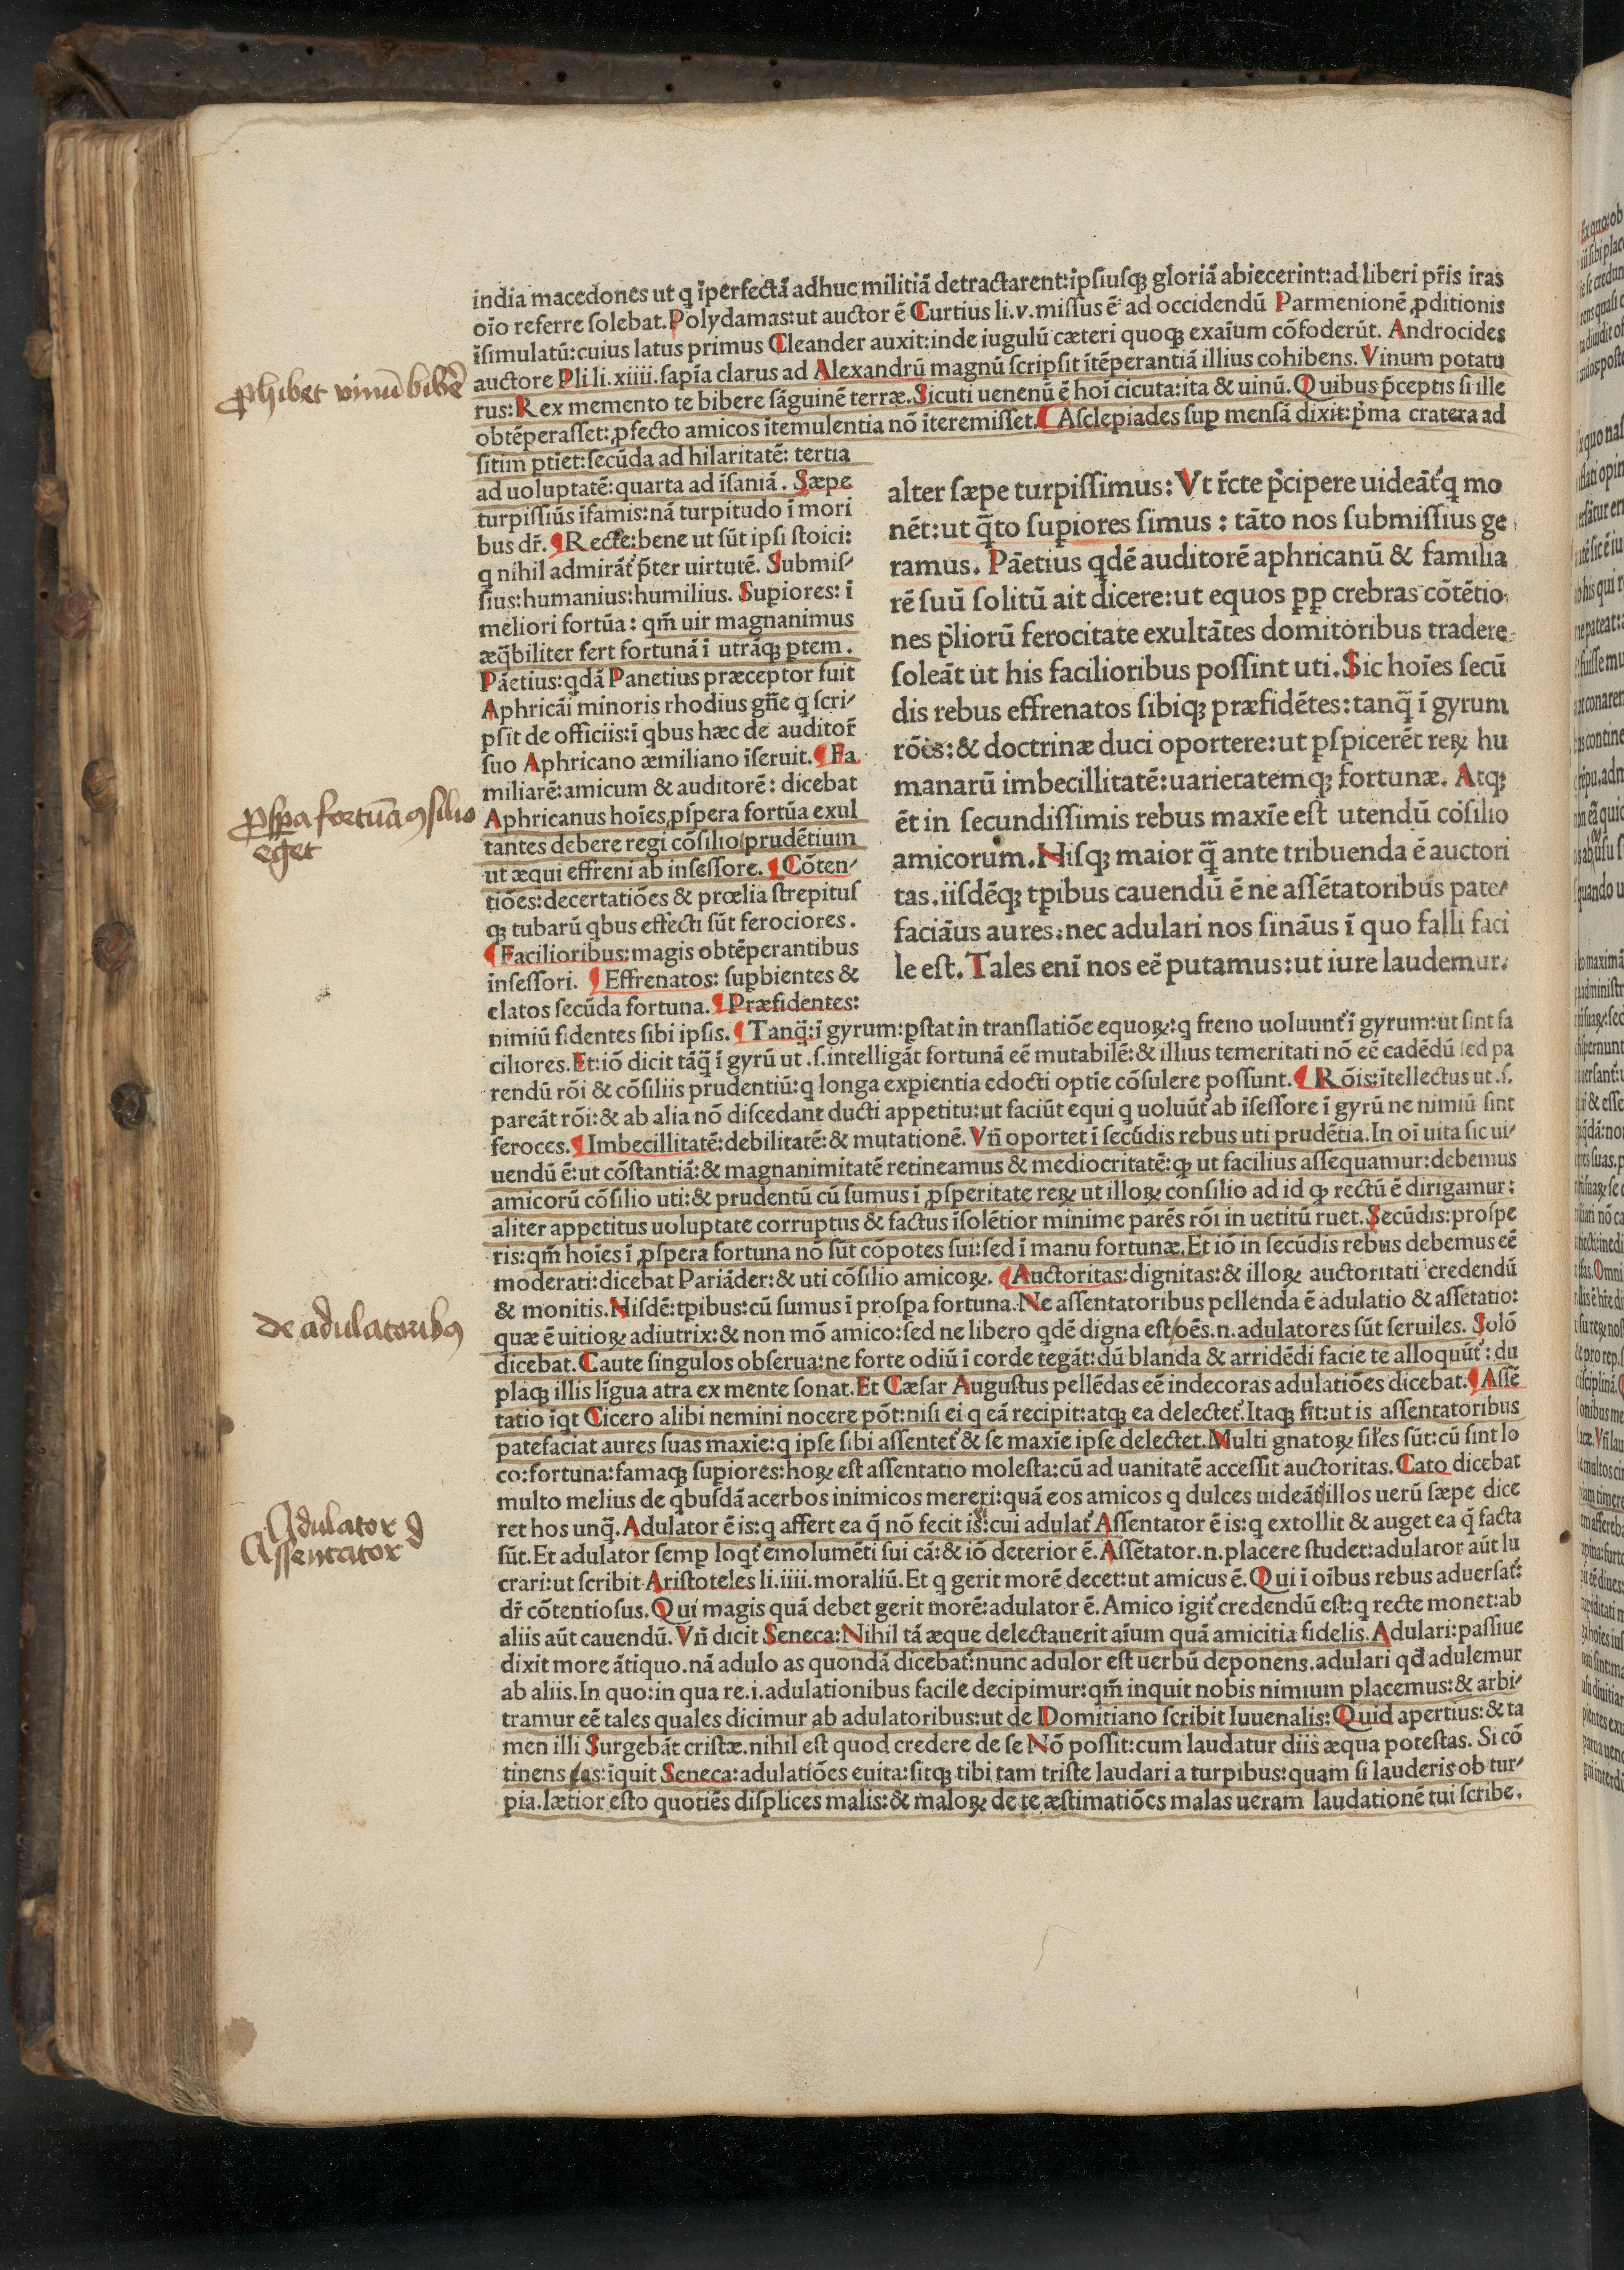 india macedones ut q īperfectā adhuc militiā detractarent:ipſiuſqꝫ gloriā abiecerint:ad liberi pr̃is iras
oīo referre ſolebat.Polydamas:ut auctor ē Curtius li.v.miſſus ē ad occidendū Parmenionē ꝓditionis
īſimulatū:cuius latus primus Cleander auxit:inde iugulū cæteri quoqꝫ exaīum cōfoderūt. Androcides
auctore Pli li.xiiii.ſapīa clarus ad Alexandrū magnū ſcripſit ītēperantiā illius cohibens. Vinum potatu
rus:Rex memento te bibere ſāguinē terræ.Sicuti uenenū ē hoī cicuta:ita & uinū.Quibus p̄ceptis ſi ille
obtēperaſſet:ꝓfecto amicos ītemulentia nō īteremiſſet.¶ Aſclepiades ſuꝑ menſā dixit:p̄ma cratera ad
ſitim ꝑtiet:ſecūda ad hilaritatē: tertia
ad uoluptatē:quarta ad īſaniā. Sæpe
turpiſſiūs īfamis:nā turpitudo ī mori
bus dr̄. ¶Recte:bene ut ſūt ipſi ſtoici:
q nihil admirāt᷑ p̄ter uirtutē. Submiſ⸗
ſius:humanius:humilius. Superiores: ī
meliori fortūa: qm̄ uir magnanimus
æq̄biliter fert fortunā ī utrāqꝫ ꝑtem.
Pāetius:qdā Panetius præceptor fuit
Aphricāi minoris rhodius gn̄e q ſcri⸗
pſit de officiis:ī qbus hæc de auditor̄
ſuo Aphricano æmiliano īſeruit. ¶Fa
miliarē:amicum & auditorē: dicebat
Aphricanus hoīes ꝓſpera fortūa exul
tantes debere regi cōſilio prudētium
ut æqui effreni ab inſeſſore. ¶Cōten⸗
tiōes:decertatiōes & prœlia ſtrepituſ
qꝫ tubarū qbus effecti ſūt ferociores.
¶Facilioribus:magis obtēperantibus
inſeſſori. ¶Effrenatos: ſuꝑbientes &
elatos ſecūda fortuna. ¶Præfidentes:
alter ſæpe turpiſſimus: Vt r̄cte p̄cipere uideāt᷑ q mo
nēt:ut q̄to ſuꝑiores ſimus : tāto nos ſubmiſſius ge
ramus. Pāetius qdē auditorē aphricanū & familia
rē ſuū ſolitū ait dicere:ut equos ꝓꝑ crebras cōtētio
nes p̄liorū ferocitate exultātes domitoribus tradere
ſoleāt ut his facilioribus poſſint uti.Sic hoīes ſecū
dis rebus effrenatos ſibiqꝫ præfidētes:tanq̄ ī gyrum
rōis:& doctrinæ duci oportere:ut ꝑſpicerēt reꝝ hu
manarū imbecillitatē:uarietatemqꝫ fortunæ. Atqꝫ
ēt in ſecundiſſimis rebus maxīe eſt utendū cōſilio
amicorum.Hiſqꝫ maior q̄ ante tribuenda ē auctori
tas.iiſdēqꝫ tꝑibus cauendū ē ne aſſētatoribus pate⸗
faciāus aures:nec adulari nos ſināus ī quo falli faci
le eſt. Tales enī nos eē putamus:ut iure laudemur.
nimiū fidentes ſibi ipſis. ¶Tanq̄:ī gyrum:ꝑſtat in tranſlatiōe equoꝝ:q freno uoluunt᷑ ī gyrum:ut ſint fa
ciliores.Et:iō dicit tāq̄ ī gyrū ut .ſ.intelligāt fortunā eē mutabilē:& illius temeritati nō eē cadēdū ſed pa
rendū rōi & cōſiliis prudentiū:q longa exꝑientia edocti optīe cōſulere poſſunt. ¶Rōis:ītellectus ut .ſ.
pareāt rōi:& ab alia nō diſcedant ducti appetitu:ut faciūt equi q uoluūt᷑ ab īſeſſore ī gyrū ne nimiū ſint
feroces.¶Imbecillitatē:debilitatē:& mutationē. Vn̄ oportet ī ſecūdis rebus uti prudētia.In oī uita ſic ui⸗
uendū ē:ut cōſtantiā:& magnanimitatē retineamus & mediocritatē:ꝙ ut facilius aſſequamur:debemus
amicorū cōſilio uti:& prudentū cū ſumus ī ꝓſperitate reꝝ ut illoꝝ conſilio ad id ꝙ rectū ē dirigamur:
aliter appetitus uoluptate corruptus & factus īſolētior minime parēs rōi in uetitū ruet.Secūdis:proſpe
ris:qm̄ hoīes ī ꝓſpera fortuna nō ſūt cōpotes ſui:ſed ī manu fortunæ.Et iō in ſecūdis rebus debemus eē
moderati:dicebat Pariāder:& uti cōſilio amicoꝝ. ¶Auctoritas:dignitas:& illoꝝ auctoritati credendū
& monitis.Niſdē:tꝑibus:cū ſumus ī proſꝑa fortuna.Ne aſſentatoribus pellenda ē adulatio & aſſētatio:
quæ ē uitioꝝ adiutrix:& non mō amico:ſed ne libero qdē digna eſt/oēs.n.adulatores ſūt ſeruiles. Solō
dicebat.Caute ſingulos obſerua:ne forte odiū ī corde tegāt:dū blanda & arridēdi facie te alloquūt᷑: du
plaqꝫ illis līgua atra ex mente ſonat.Et Cæſar Auguſtus pellēdas eē indecoras adulatiōes dicebat.¶Aſſē
tatio īqt Cicero alibi nemini nocere pōt:niſi ei q eā recipit:atqꝫ ea delectet᷑.Itaqꝫ fit:ut is aſſentatoribus
patefaciat aures ſuas maxīe:q ipſe ſibi aſſentet᷑ & ſe maxīe ipſe delectet.Multi gnatoꝝ ſiłes ſūt:cū ſint lo
co:fortuna:famaqꝫ ſuꝑiores:hoꝝ eſt aſſentatio moleſta:cū ad uanitatē acceſſit auctoritas. Cato dicebat
multo melius de qbuſdā acerbos inimicos mereri:quā eos amicos q dulces uideāt᷑ illos uerū ſæpe dice
ret hos unq̄.Adulator ē is:q affert ea q̄ nō fecit is:cui adulat᷑ Aſſentator ē is:q extollit & auget ea q̄ facta
ſūt.Et adulator ſemꝑ loqt᷑ emolumēti ſui cā:& iō deterior ē.Aſſētator.n.placere ſtudet:adulator aūt lu
crari:ut ſcribit Ariſtoteles li.iiii.moraliū.Et q gerit morē decet:ut amicus ē.Qui ī oībus rebus aduerſat᷑:
dr̄ cōtentioſus.Qui magis quā debet gerit morē:adulator ē.Amico igit᷑ credendū eſt:q recte monet:ab
aliis aūt cauendū. Vn̄ dicit Seneca:Nihil tā æque delectauerit aīum quā amicitia fidelis.Adulari:paſſiue
dixit more ātiquo.nā adulo as quondā dicebat᷑:nunc adulor eſt uerbū deponens.adulari qđ adulemur
ab aliis.In quo:in qua re.i.adulationibus facile decipimur:qm̄ inquit nobis nimium placemus:& arbi⸗
tramur eē tales quales dicimur ab adulatoribus:ut de Domitiano ſcribit Iuuenalis:Quid apertius:& ta
men illi Surgebāt criſtæ.nihil eſt quod credere de ſe Nō poſſit:cum laudatur diis æqua poteſtas. Si cō
tinens eas:īquit Seneca:adulatiōes euita:ſitqꝫ tibi tam triſte laudari a turpibus:quam ſi lauderis ob tur⸗
pia.lætior eſto quotiēs diſplices malis:& maloꝝ de te æſtimatiōes malas ueram laudationē tui ſcribe.
ꝓhibet vinū bibē
ꝓſꝑa fortūa ꝯſilio
eget
de adulatoribꝰ
Adulator
Aſſentator